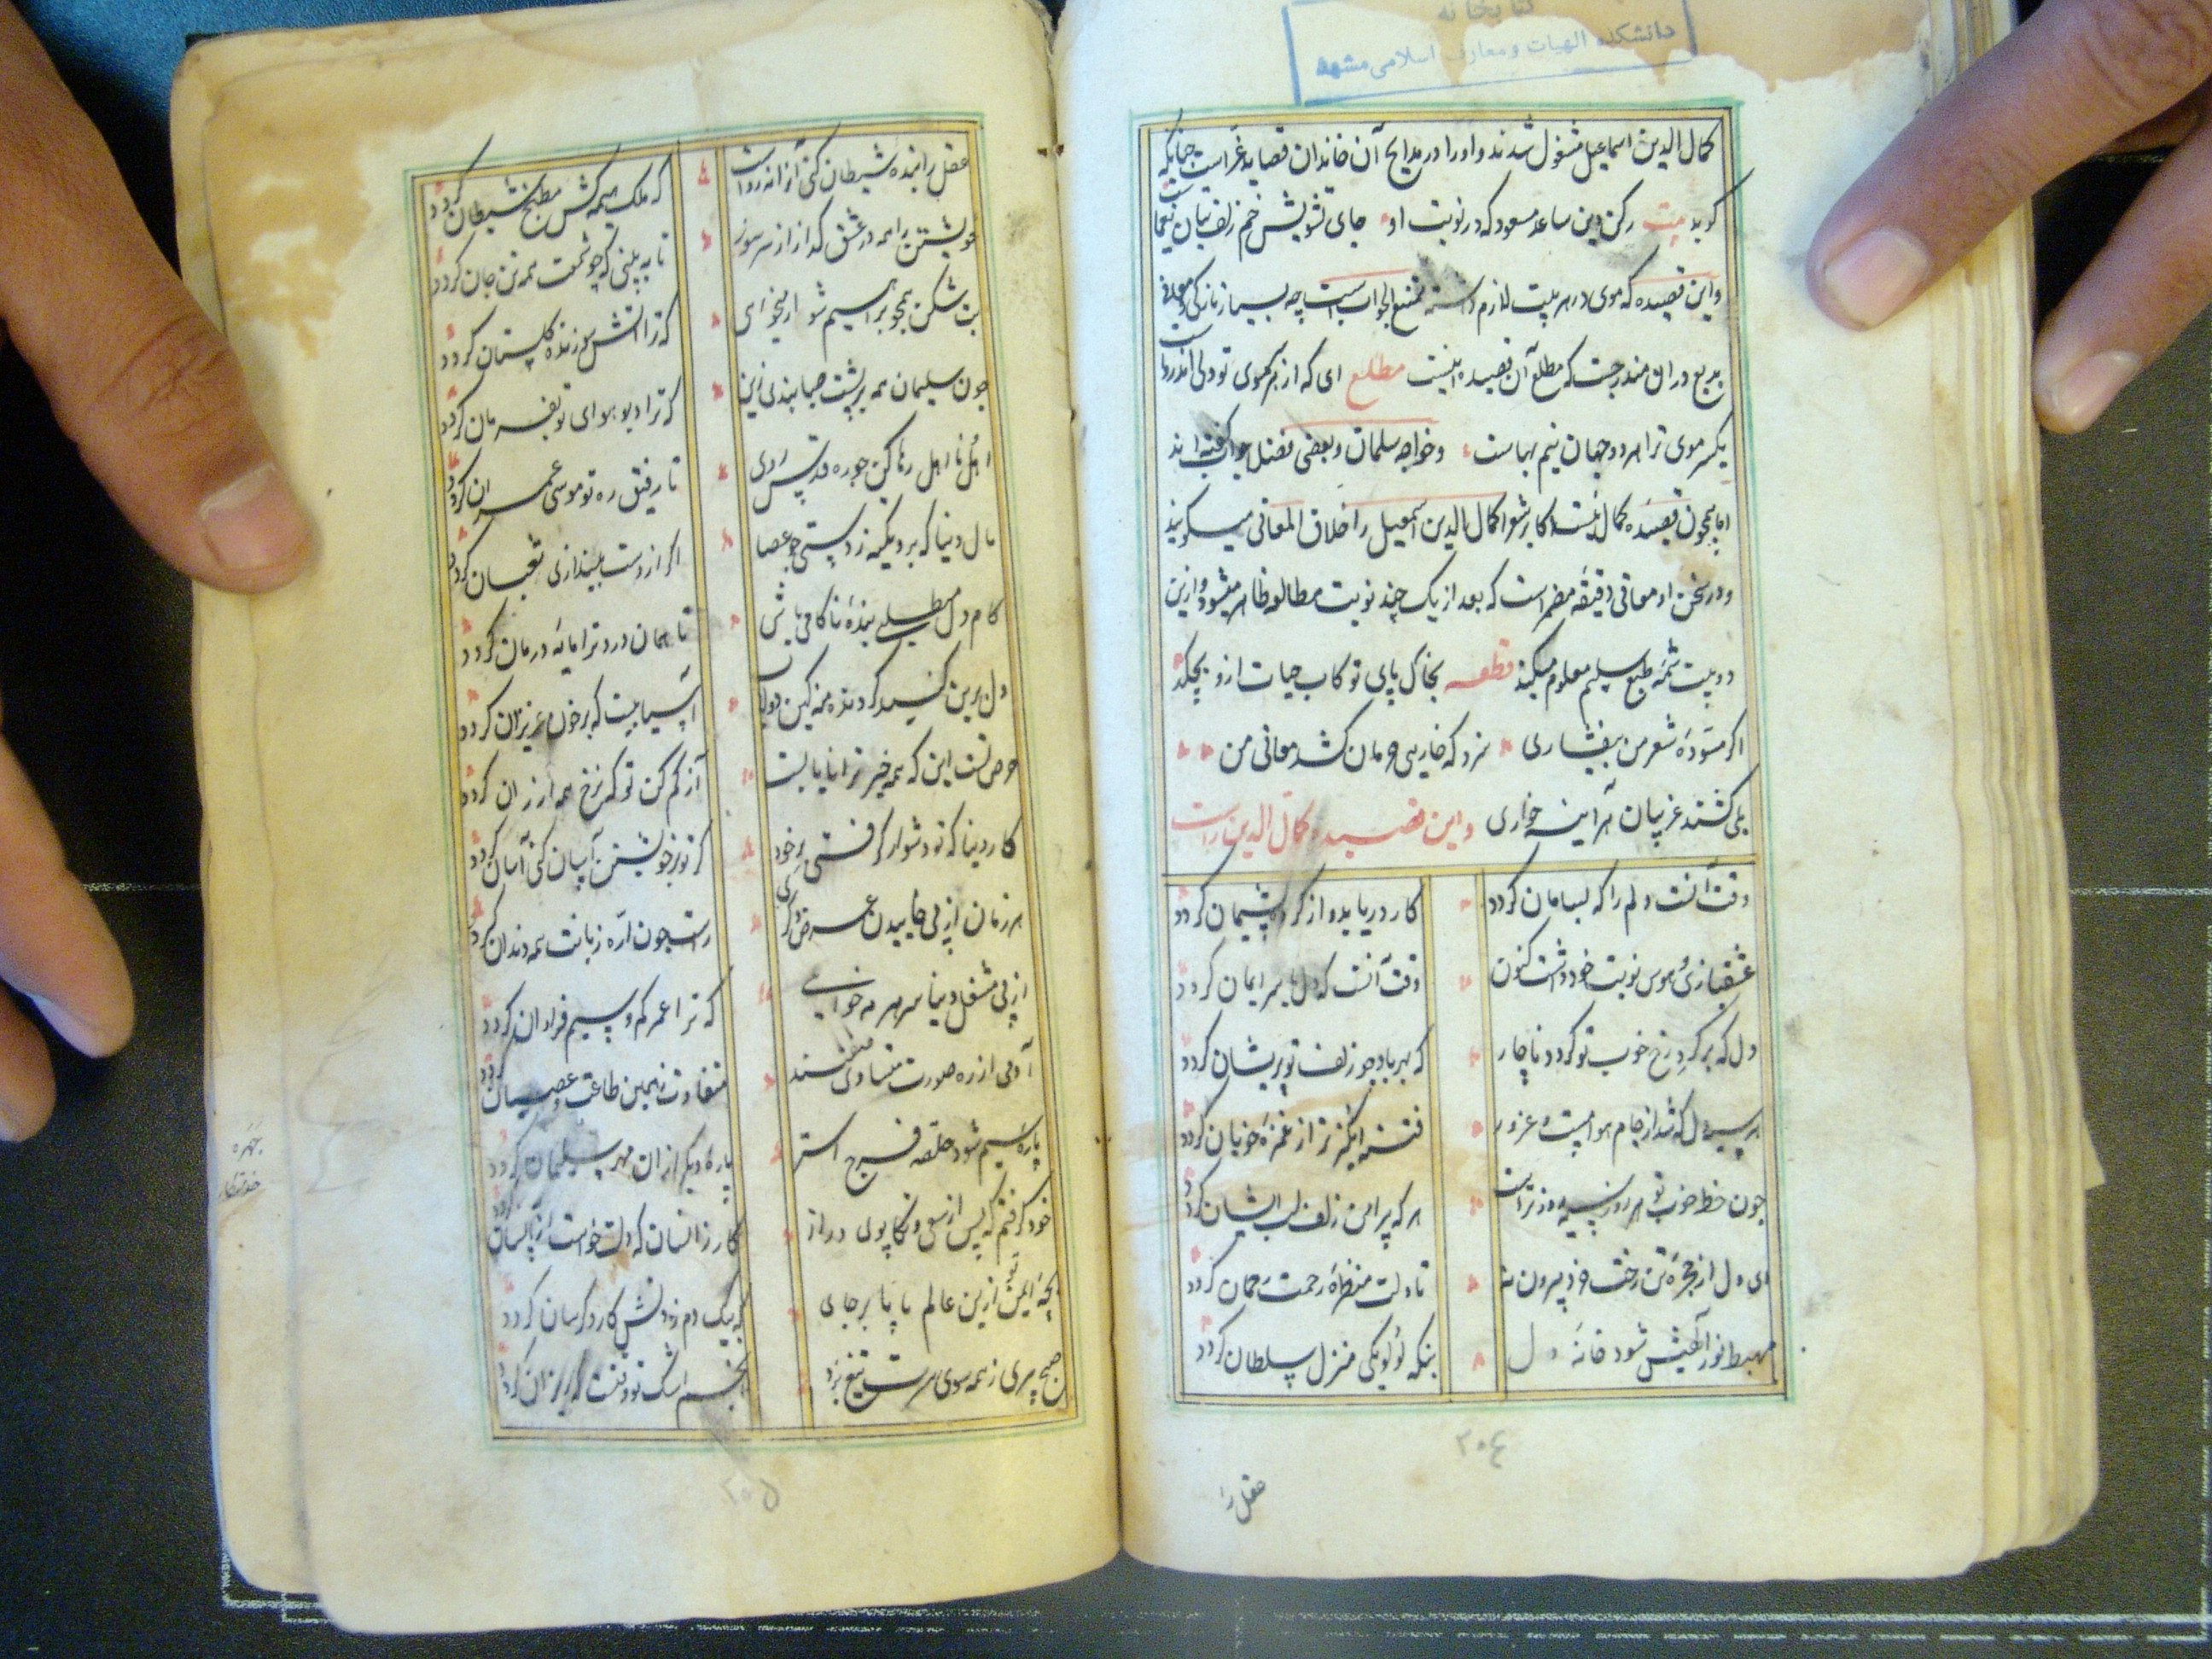 کتابخانه
دانشکده الهیات و معارف اسلامی مشهد
کمال الدین اسماعیل مشغول شدند و او را در مدایح آن خاندان قصاید غراست چنانکه
کوید بیت رکن دین ساعد مسعود که در نوبت او جای تشویش خم زلف بتان یغماست
و این قصیده که موی در هر بیت لازم داشته ممتنع الجواب است چه بسیار نازکی و معانی
بدیع در ان مندرجست که مطلع آن قصیده اینست مطلع ای که از هر سر موی تو دلی اندرواست
یکسر موی ترا هر دو جهان نیم بهاست و خواجه سلمان و بعضی فضلا جواب گفته اند
اما همچون قصیده کمال نیست اکابر شعرا کمال الدین اسمعیل را خلاق المعانی میکویند
و در سخن او معانی دقیقه مضمراست که بعد از یک چند نوبت مطالعه ظاهر میشود و ازین
دو بیت شمه طبع سلیم معلوم میکند قطعه بخاک پای تو کاب حیات ازو بچکد
اکر مسوده شعر من بیفشاری سزد که خاریی و مان کشد معانی من
بلی کشند غریبان هر اینه خواری و این قصیده کمال الدین راست
وقت آنست دلم را که بسامان کردد کار دریابد و از کرده پشیمان کردد
عشقبازی و هوس نوبت خود داشت کنون وقت آنست که دل با سر ایمان کردد
دل که بر کرد رخ خوب تو کردد ناچار که بهر باد چو زلف تو پریشان کردد
هر سیه دل که شد از جام هوا مست غرور فتنه انکیزتر از غمزه خوبان کردد
چون خط خوب تو هر روز سیه روزتراست هر که پیرامن زلف لب ایشان کردد
ای دل از حجره تن رخت خود بیرون نه تا دلت منظره رحمت رحمان کردد
مهبط نور آلهیش شود خانه دل بنکه لولیکی منزل سلطان کردد
۲۰۴
عقل را
عقل را بنده شیطان کنی آن نه رواست که ملک هیمه کش مطبخ شیطان کردد
خویشتن را همه در عشق کداز از سر سوز تا ببینی که چو شمعت همه تن جان کردد
بت شکن همچو براهیم شو ار میخواهی که ترا آتش سوزنده کلستان کردد
چون سلیمان همه بر پشت صبا بندی زین که ترا دیو هوای تو بفرمان کردد
اهل نا اهل رها کن چو ره قدس روی تا رفیق ره تو موسی عمران کردد
مال دنیا که برو تکیه زدستی چو عصا اکر از دست بیندازی ثعبان کردد
کام دل میطلبی بنده ناکامی باش تا همان درد ترا مایه درمان کردد
دل برین کنبد کردنده منه کین دولاب آسیاییست که بر خون عزیزان کردد
حرص تست این که همه چیز ترا نایابست آز کم کن تو که نرخ همه ارزان کردد
کار دنیا که تو دشوار کرفتستی بر خود کر تو بر خویشتن آسان کنی آسان کردد
هر زمان از پی خاییدن عرض دکری راست چون اره زبانت همه دندان کردد
از پی مشغله دنیا سر مه خواهی که ترا عمر کم و سیم فراوان کردد
آدمی از ره صورت متساوی صفتند متفاوت بهمین طاعت و عصیان کردد
پاره سیم شود حلقه فرج استر پاره دیکر ازان مهر سلیمان کردد
خود کرفتم که پس از سعی و تکاپوی دراز کار ز انسان که دلت خواست ز آنسان کردد
بچه ایمن شوی ازین عالم ناپابرجای که بیک دم زدنش کار دکرسان کردد
صبح پیری ز همه سوی سرت تیغ بزد انجم اشک تو وقتست که ریزان کردد
۲۰۵